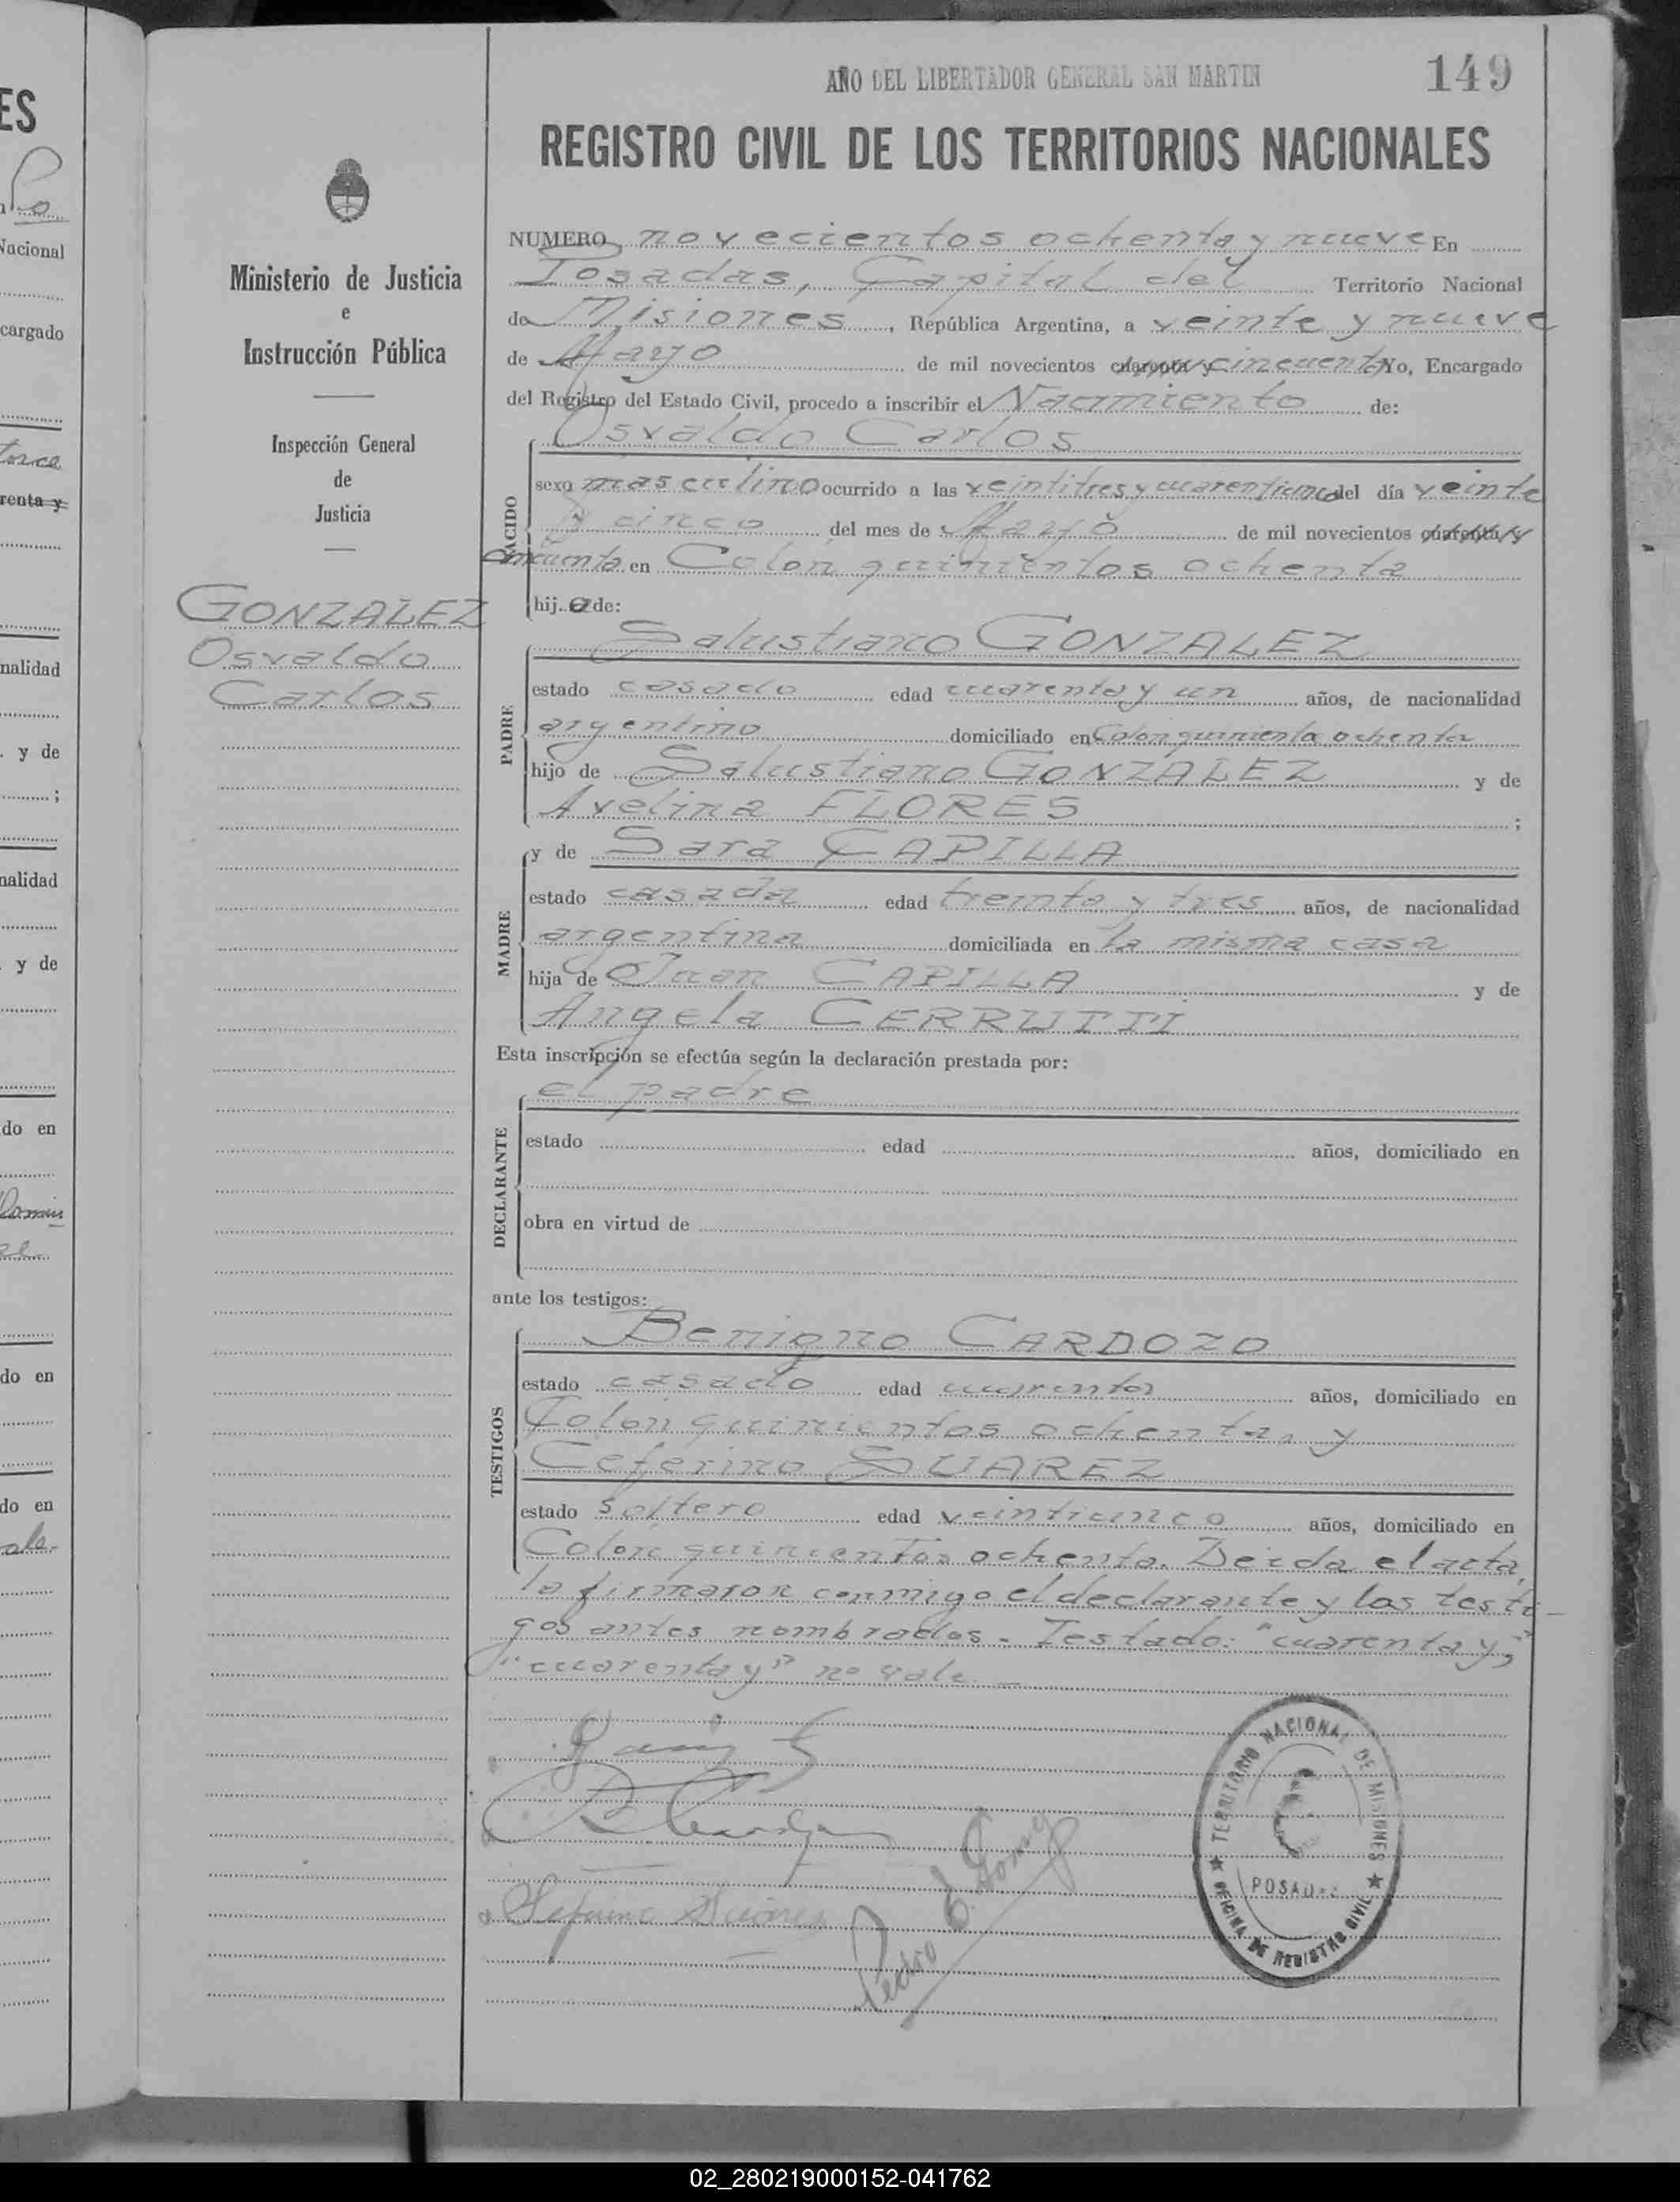 149
AÑO DEL LIBERTADOR GENERAL SAN MARTIN
REGISTRO CIVIL DE LOS TERRITORIOS NACIONALES
Ministerio de Justicia
e
Instrucción Pública
Inspección General
de
Justicia
GONZALEZ
Osvaldo
Carlos
NUMERO novecientos ochenta y nueve En
Posadas, Capital del Territorio Nacional
de Misiones, República Argentina, a veinte y nueve
de Mayo de mil novecientos cuarenta y cincuenta Yo, Encargado
del Registro del Estado Civil, procedo a inscribir el Nacimiento de:
Osvaldo Carlos
NACIDO
sexo masculino ocurrido a las veintitres y cuarenticinco del día veinte
y cinco del mes de Mayo de mil novecientos cuarenta y
cincuenta en Colón quinientos ochenta
hij.o de:
PADRE
Salustiano GONZALEZ
estado casado edad cuarenta y un años, de nacionalidad
argentino domiciliado en Colon quinientos ochenta
hijo de Salustiano GONZALEZ y de
Avelina FLORES ;
MADRE
y de Sara CAPILLA
estado casada edad treinta y tres años, de nacionalidad
argentina domiciliada en la misma casa
hija de Juan CAPILLA y de
Angela CERRUTTI
Esta inscripción se efectúa según la declaración prestada por:
DECLARANTE
el padre
estado edad años, domiciliado en
obra en virtud de
ante los testigos:
TESTIGOS
Benigno CARDOZO
estado casado edad cuarenta años, domiciliado en
Colón quinientos ochenta, y
Ceferino SUAREZ
estado soltero edad veinticinco años, domiciliado en
Colón quinientos ochenta. Leida el acta,
la firmaron conmigo el declarante y los testi-
gos antes nombrados. Testado: "cuarenta y",
"cuarenta y" no vale. —
Pedro E. Gomez
TERRITORIO NACIONAL DE MISIONES
POSADAS
OFICINA DE REGISTRO CIVIL
ES
Nacional
cargado
renta y
nalidad
. y de
;
nalidad
. y de
do en
do en
do en
02_280219000152-041762